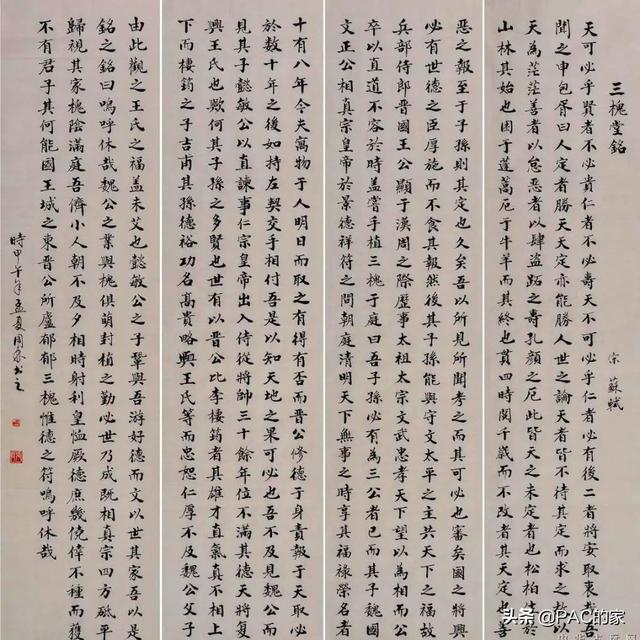 三槐堂銘
宋 蘇軾
天可必乎賢者不必貴仁者不必壽天不可必乎仁者必有後二者將安取衷哉吾
聞之申包胥曰人定者勝天天定亦能勝人世之論天者皆不待其定而求之故以
天為茫茫善者以怠惡者以肆盜跖之壽孔顏之厄此皆天之未定者也松柏生於
山林其始也困于蓬蒿厄于牛羊而其終也貫四時閱千歲而不改者其天定也善
惡之報至于子孫則其定也久矣吾以所見所聞考之而其可必也審矣國之將興
必有世德之臣厚施而不食其報然後其子孫能與守文太平之主共天下之福故
兵部侍郎晉國王公顯于漢周之際歷事太祖太宗文武忠孝天下望以為相而公
卒以直道不容於時盖嘗手植三槐于庭曰吾子孫必有為三公者已而其子魏國
文正公相真宗皇帝於景德祥符之間朝庭清明天下無事之時享其福祿榮名者
十有八年今夫寓物于人明日而取之有得有否而晉公修德于身責報于天取必
於數十年之後如持左契交手相付吾是以知天地之果可必也吾不及見魏公而
見其子懿敏公以直諫事仁宗皇帝出入侍從將帥三十餘年位不滿其德天將復
興王氏也歟何其子孫之多賢也世有以晉公比李棲筠者其雄才直氣真不相上
下而棲筠之子吉甫其孫德裕功名富貴略與王氏等而忠恕仁厚不及魏公父子
由此觀之王氏之福盖未艾也懿敏公之子鞏與吾游好德而文以世其家吾以是
銘之銘曰嗚呼休哉魏公之業與槐俱萌封植之勤必世乃成既相真宗四方砥平
歸視其家槐陰滿庭吾儕小人朝不及夕相時射利皇恤厥德庶幾僥倖不種而獲
不有君子其何能國王城之東晉公所廬郁郁三槐惟德之符嗚呼休哉
時甲午年孟夏周
头条 @PAC的家